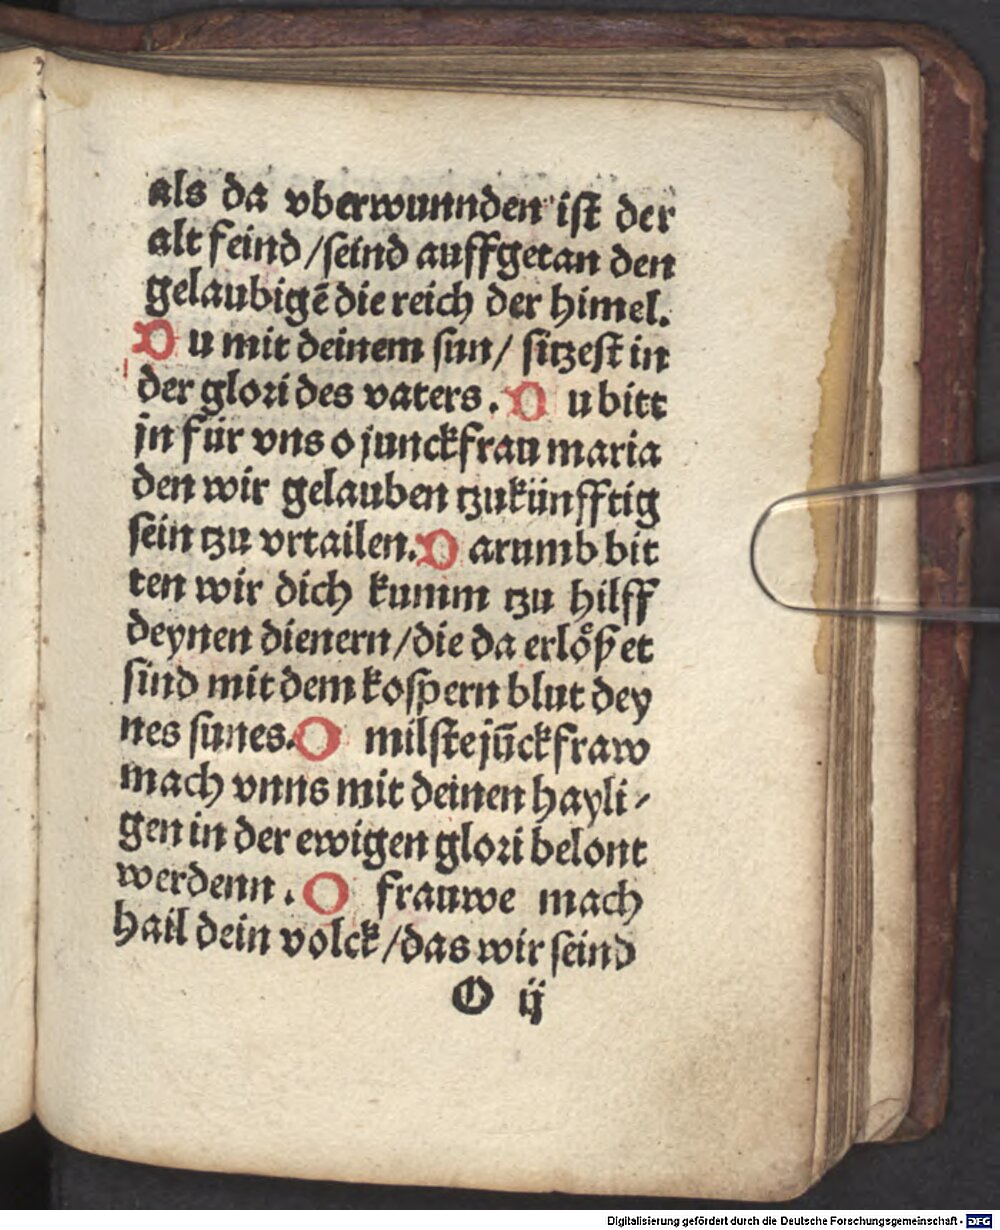 als da vberwunnden ist der
alt feind /seind auffgetan den
gelaubigē die reich der himel.
Du mit deinem sun/ sitzest in
der glori des vaters. Du bitt
jn für vns o junckfrau maria
den wir gelauben tzukünfftig
sein tzu vrtailen. Darumb bit
ten wir dich kumm tzu hilff
deynen dienern/die da erlößet
sind mit dem kospern blut dey
nes sunes. O milste jūckfraw
mach vnns mit deinen hayli⸗
gen in der ewigen glori belont
werdenn. O frauwe mach
hail dein volck/das wir seind
O ij
Digitalisierung gefördert durch die Deutsche Forschungsgemeinschaft - DFG